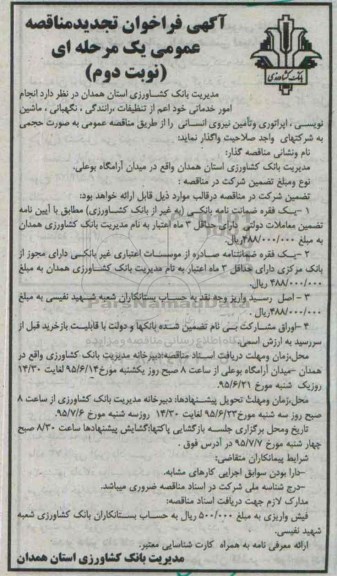 آگهی فراخوان تجدیدمناقصه
عمومی یک مرحله ای
(نوبت دوم)
بانک کشاورزی
مدیریت بانک کشاورزی استان همدان در نظر دارد انجام
امور خدماتی خود اعم از تنظیفات ،رانندگی ، نگهبانی ، ماشین
نویسی ، اپراتوری وتأمین نیروی انسانی را از طریق مناقصه عمومی به صورت حجمی
به شرکتهای واجد صلاحیت واگذار نماید:
نام ونشانی مناقصه گذار:
مدیریت بانک کشاورزی استان همدان واقع در میدان آرامگاه بوعلی.
نوع ومبلغ تضمین شرکت در مناقصه :
تضمین شرکت در مناقصه درقالب موارد ذیل قابل ارائه خواهد بود:
۱ -یک فقره ضمانت نامه بانکی (به غیر از بانک کشاورزی) مطابق با آیین نامه
تضمین معاملات دولتی دارای حداقل ۳ ماه اعتبار به نام مدیریت بانک کشاورزی همدان
به مبلغ ۴۸۸/۰۰۰/۰۰۰ریال.
۲ -یک فقره ضمانتنامه صادره از موسسات اعتباری غیر بانکی دارای مجوز از
بانک مرکزی دارای حداقل ۳ ماه اعتبار به نام مدیریت بانک کشاورزی همدان به مبلغ
۴۸۸/۰۰۰/۰۰۰ ریال.
۳ - اصل رسید واریز وجه نقد به حساب بستانکاران شعبه شهید نفیسی به مبلغ
۴۸۸/۰۰۰/۰۰۰ریال.
۴ -اوراق مشارکت بی نام تضمین شده بانکها و دولت با قابلیت بازخرید قبل از
سررسید به ارزش اسمی.
محل،زمان ومهلت دریافت اسناد مناقصه:دبیرخانه مدیریت بانک کشاورزی واقع در
همدان -میدان آرامگاه بوعلی از ساعت ۸ صبح روز یکشنبه مورخ۹۵/۶/۱۴ لغایت ۱۴/۳۰
روزیک شنبه مورخ ۹۵/۶/۲۱.
محل،زمان ومهلت تحویل پیشنهادها: دبیرخانه مدیریت بانک کشاورزی از ساعت ۸
صبح روز سه شنبه مورخ۹۵/۶/۲۳ لغایت ۱۴/۳۰ روزسه شنبه مورخ ۹۵/۷/۶.
تاریخ ومحل برگزاری جلسه بازگشایی پاکتها:گشایش پیشنهادها ساعت ۸/۳۰ صبح
چهار شنبه مورخ ۹۵/۷/۷ در آدرس فوق .
شرایط پیمانکاران متقاضی:
-دارا بودن سوابق اجرایی کارهای مشابه.
-درج شناسه ملی شرکت در اسناد مناقصه ضروری میباشد.
مدارک لازم جهت دریافت اسناد مناقصه:
فیش واریزی به مبلغ ۵۰۰/۰۰۰ ریال به حساب بستانکاران بانک کشاورزی شعبه
شهید نفیسی.
ارائه معرفی نامه به همراه کارت شناسایی معتبر.
مدیریت بانک کشاورزی استان همدان